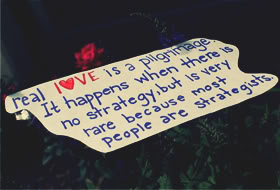 real l♥VE is a pilgrimage.
It happens when there is
no strategy, but is very
rare because most
people are strategists